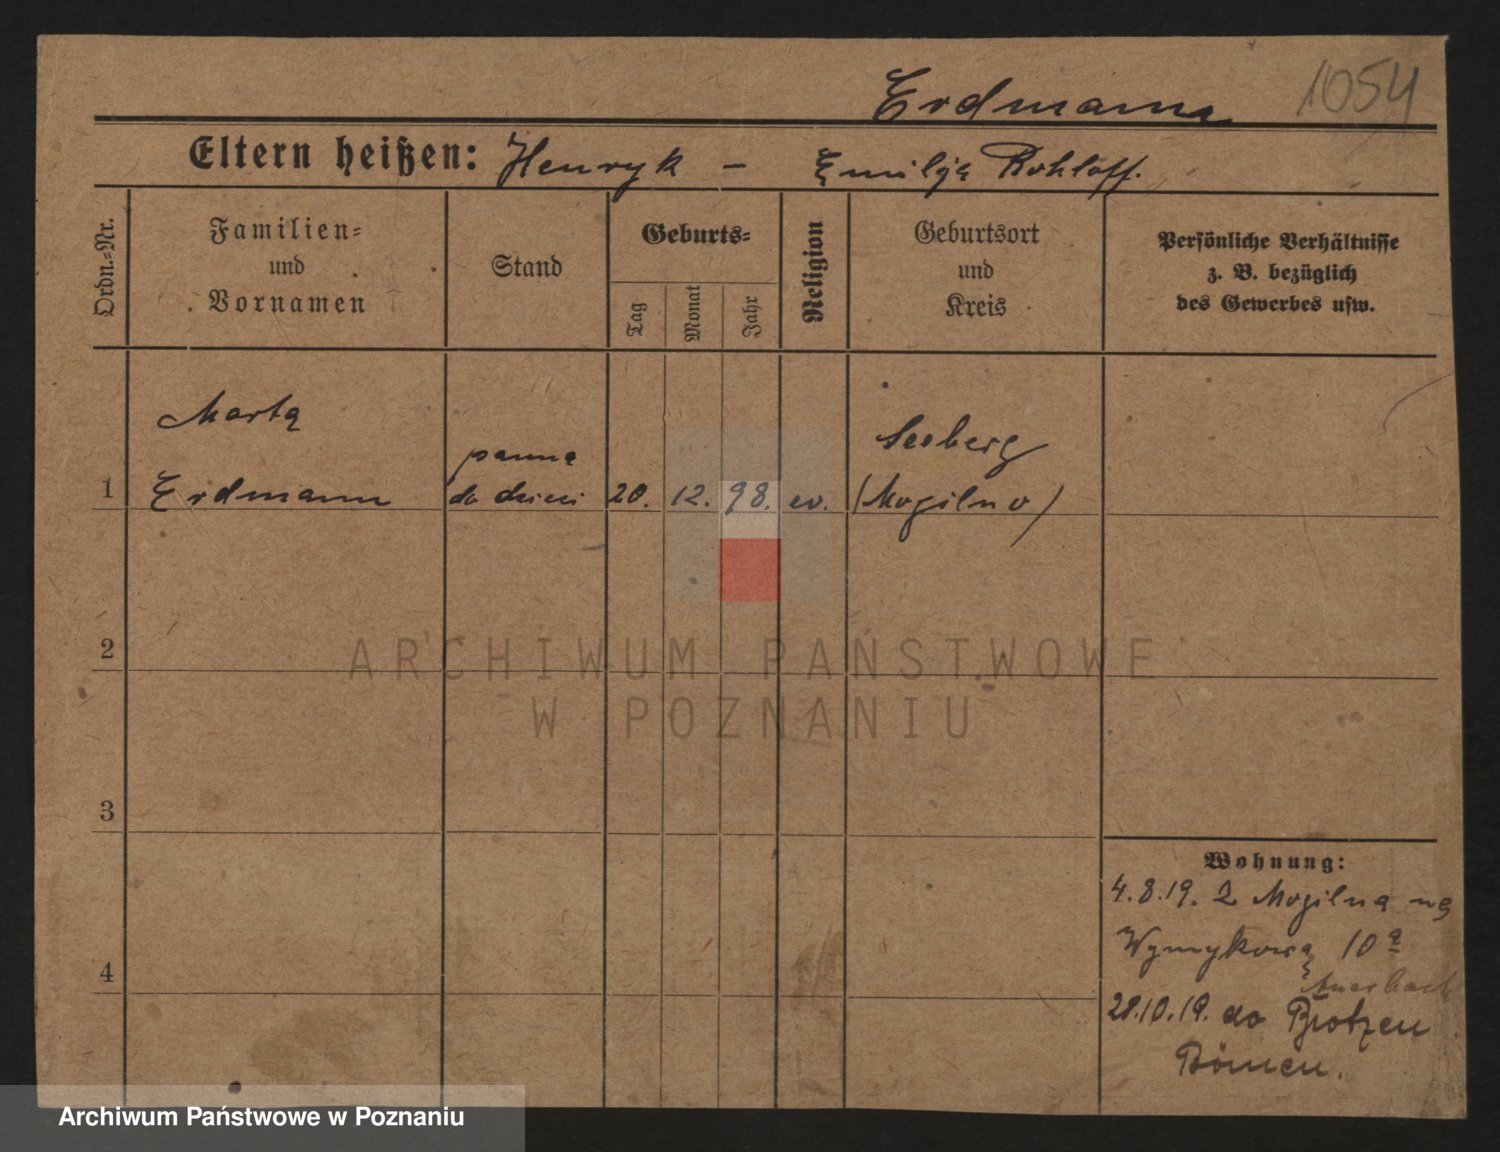 1054
Erdmann
Eltern heißen: Henryk - Emilja Rohloff.
Ordn.-Nr.
Familien-
und
Vornamen
Stand
Geburts-
Tag
Monat
Jahr
Religion
Geburtsort
und
Kreis
Persönliche Verhältnisse
z. B. bezüglich
des Gewerbes usw.
Marta
Erdmann
panna
do dzieci
1
20. 12. 98. ev.
Seeberg
(Mogilno)
2
ARCHIWUM PAŃSTWOWE
W POZNANIU
3
Wohnung:
4.8.19. z Mogilna na
10a
4
Auerbach
28.10.19. do
Archiwum Państwowe w Poznaniu